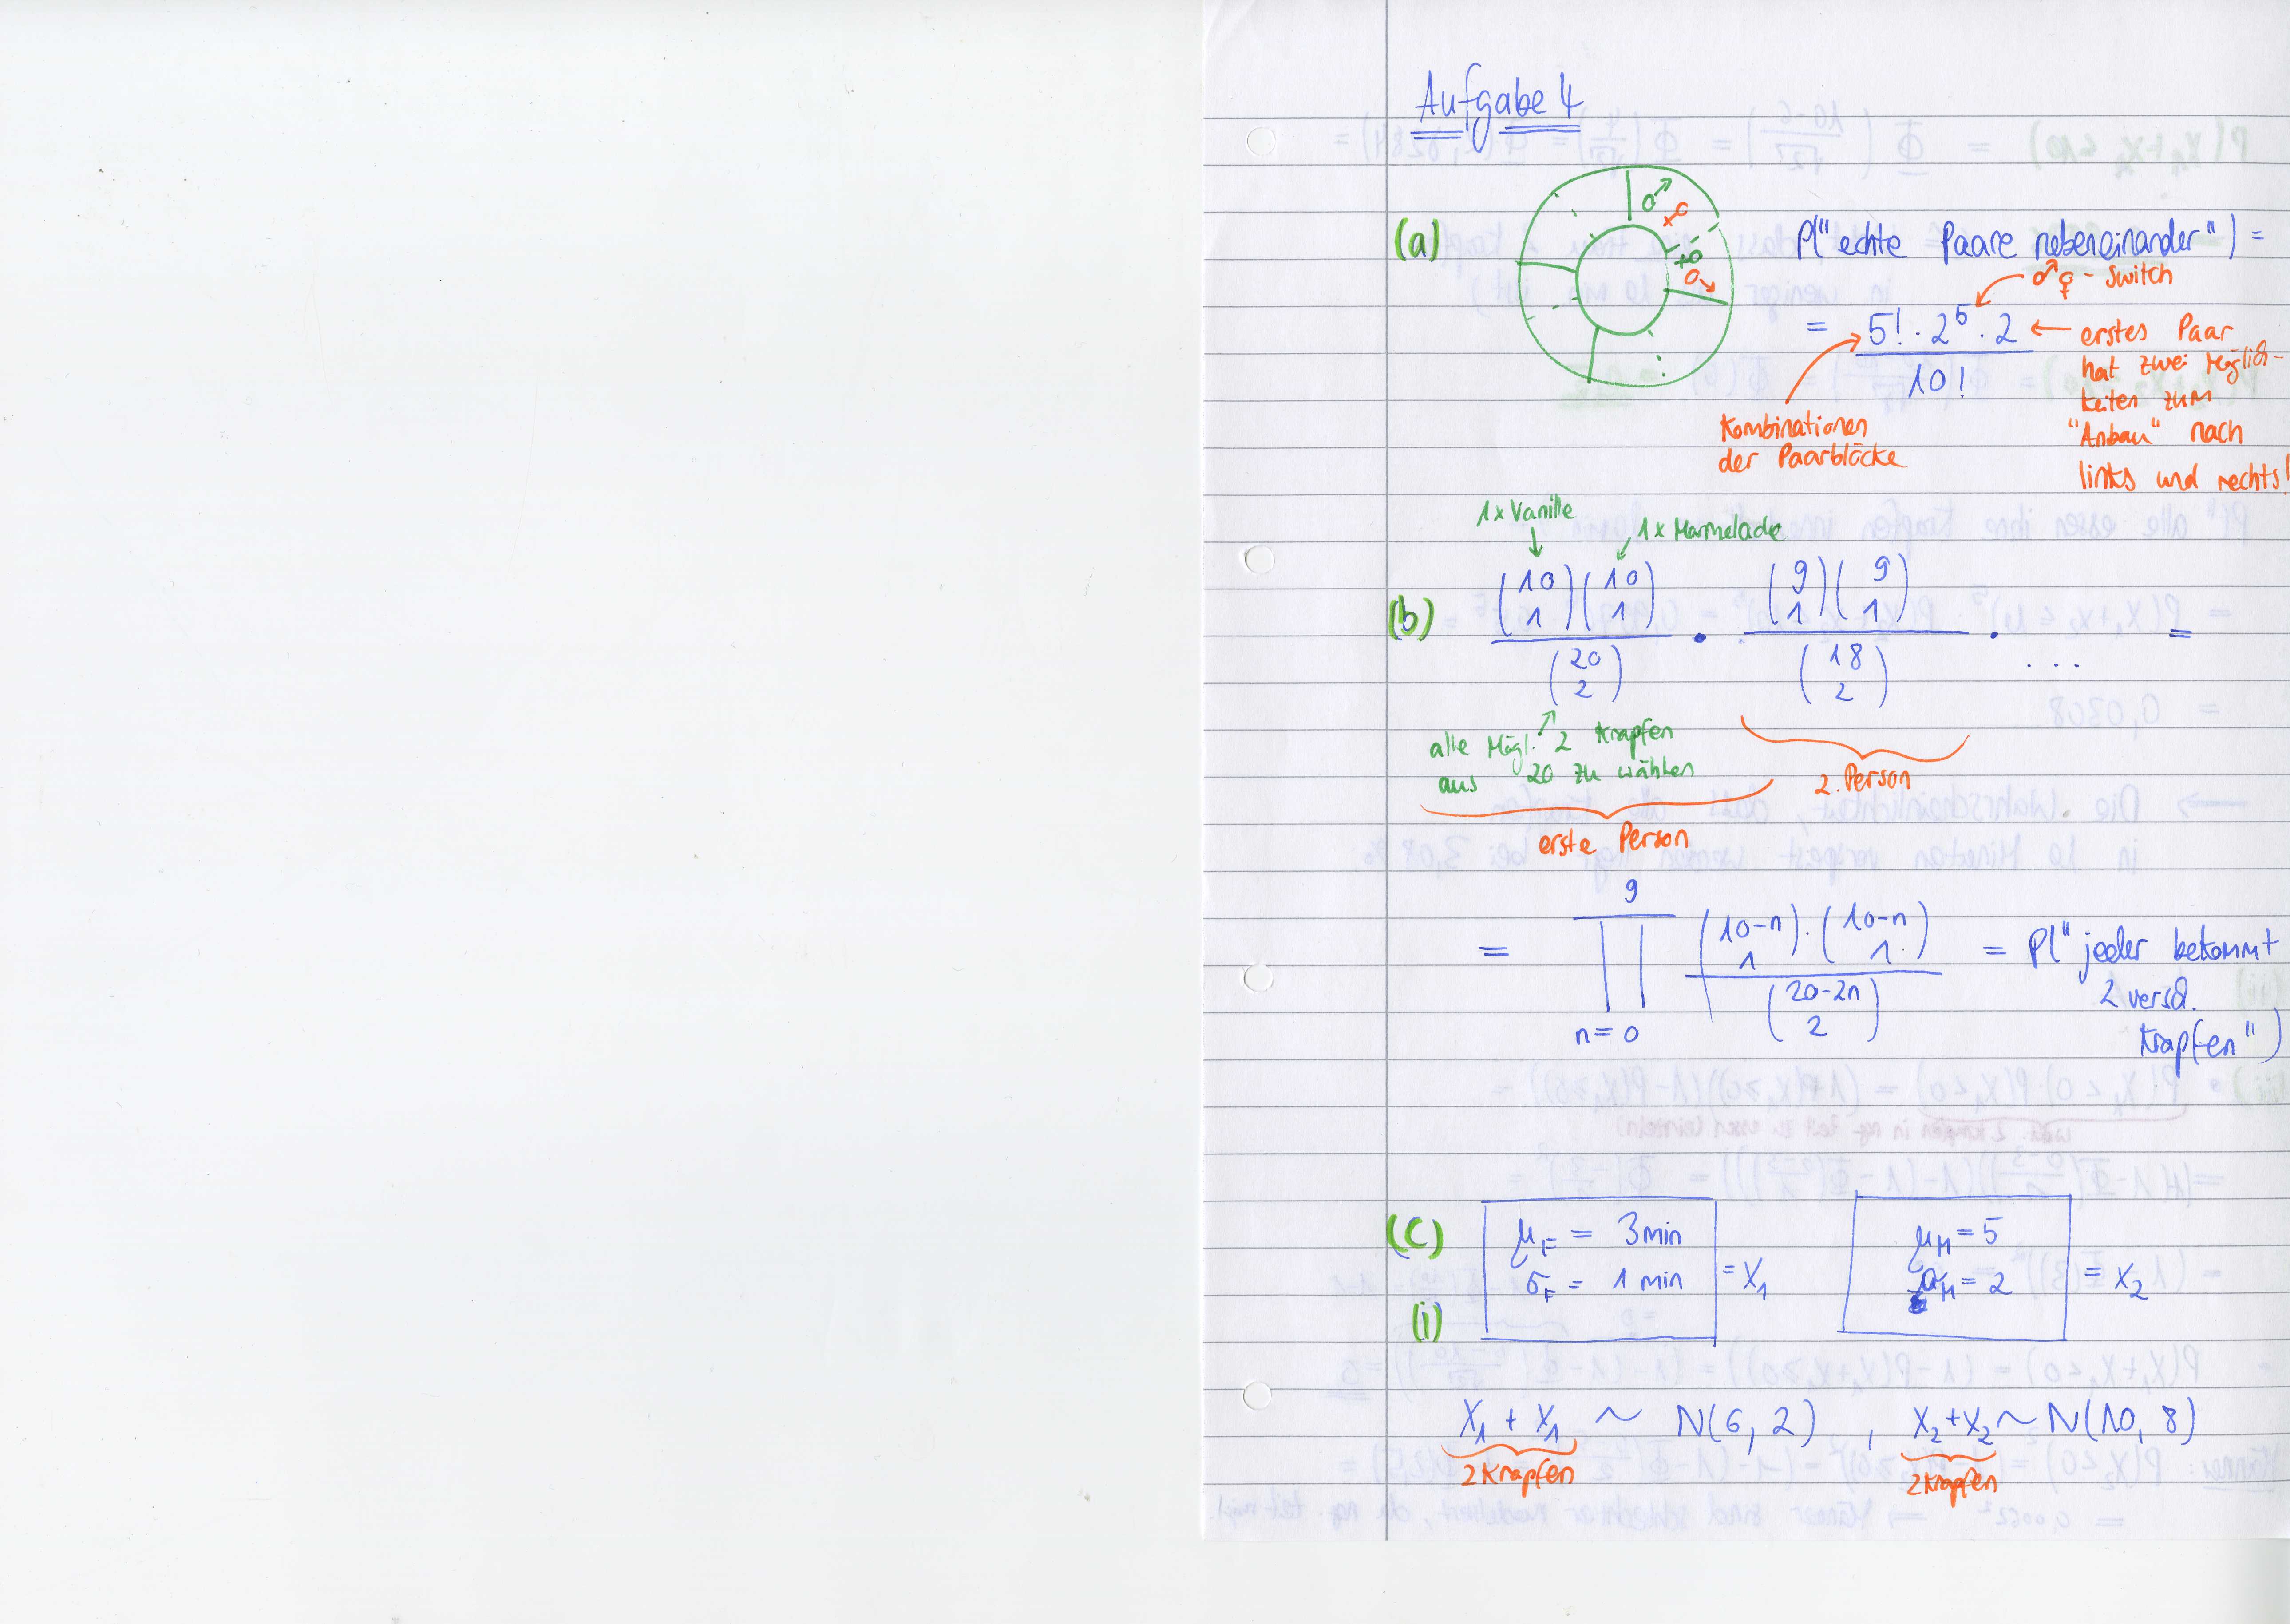 Aufgabe 4
(a) P("echte Paare nebeneinander") =
♂♀ - Switch
= 5! · 2^5 · 2 / 10!
← erstes Paar
hat zwei Möglich-
keiten zum
"Anbau" nach
links und rechts!
Kombinationen
der Paarblöcke
1x Vanille
1x Marmelade
(b) (10 1)(10 1) / (20 2) · (9 1)(9 1) / (18 2) · ... =
alle Mögl. 2 Krapfen
aus 20 zu wählen
2. Person
erste Person
= ∏_{n=0}^{9} (10-n 1)·(10-n 1) / (20-2n 2) = P("jeder bekommt
2 versch.
Krapfen")
(c) μ_F = 3min
σ_F = 1 min
= X₁
μ_M = 5
σ_M = 2
= X₂
(i)
X₁ + X₁ ~ N(6, 2) , X₂+X₂ ~ N(10, 8)
2 Krapfen
2 Krapfen